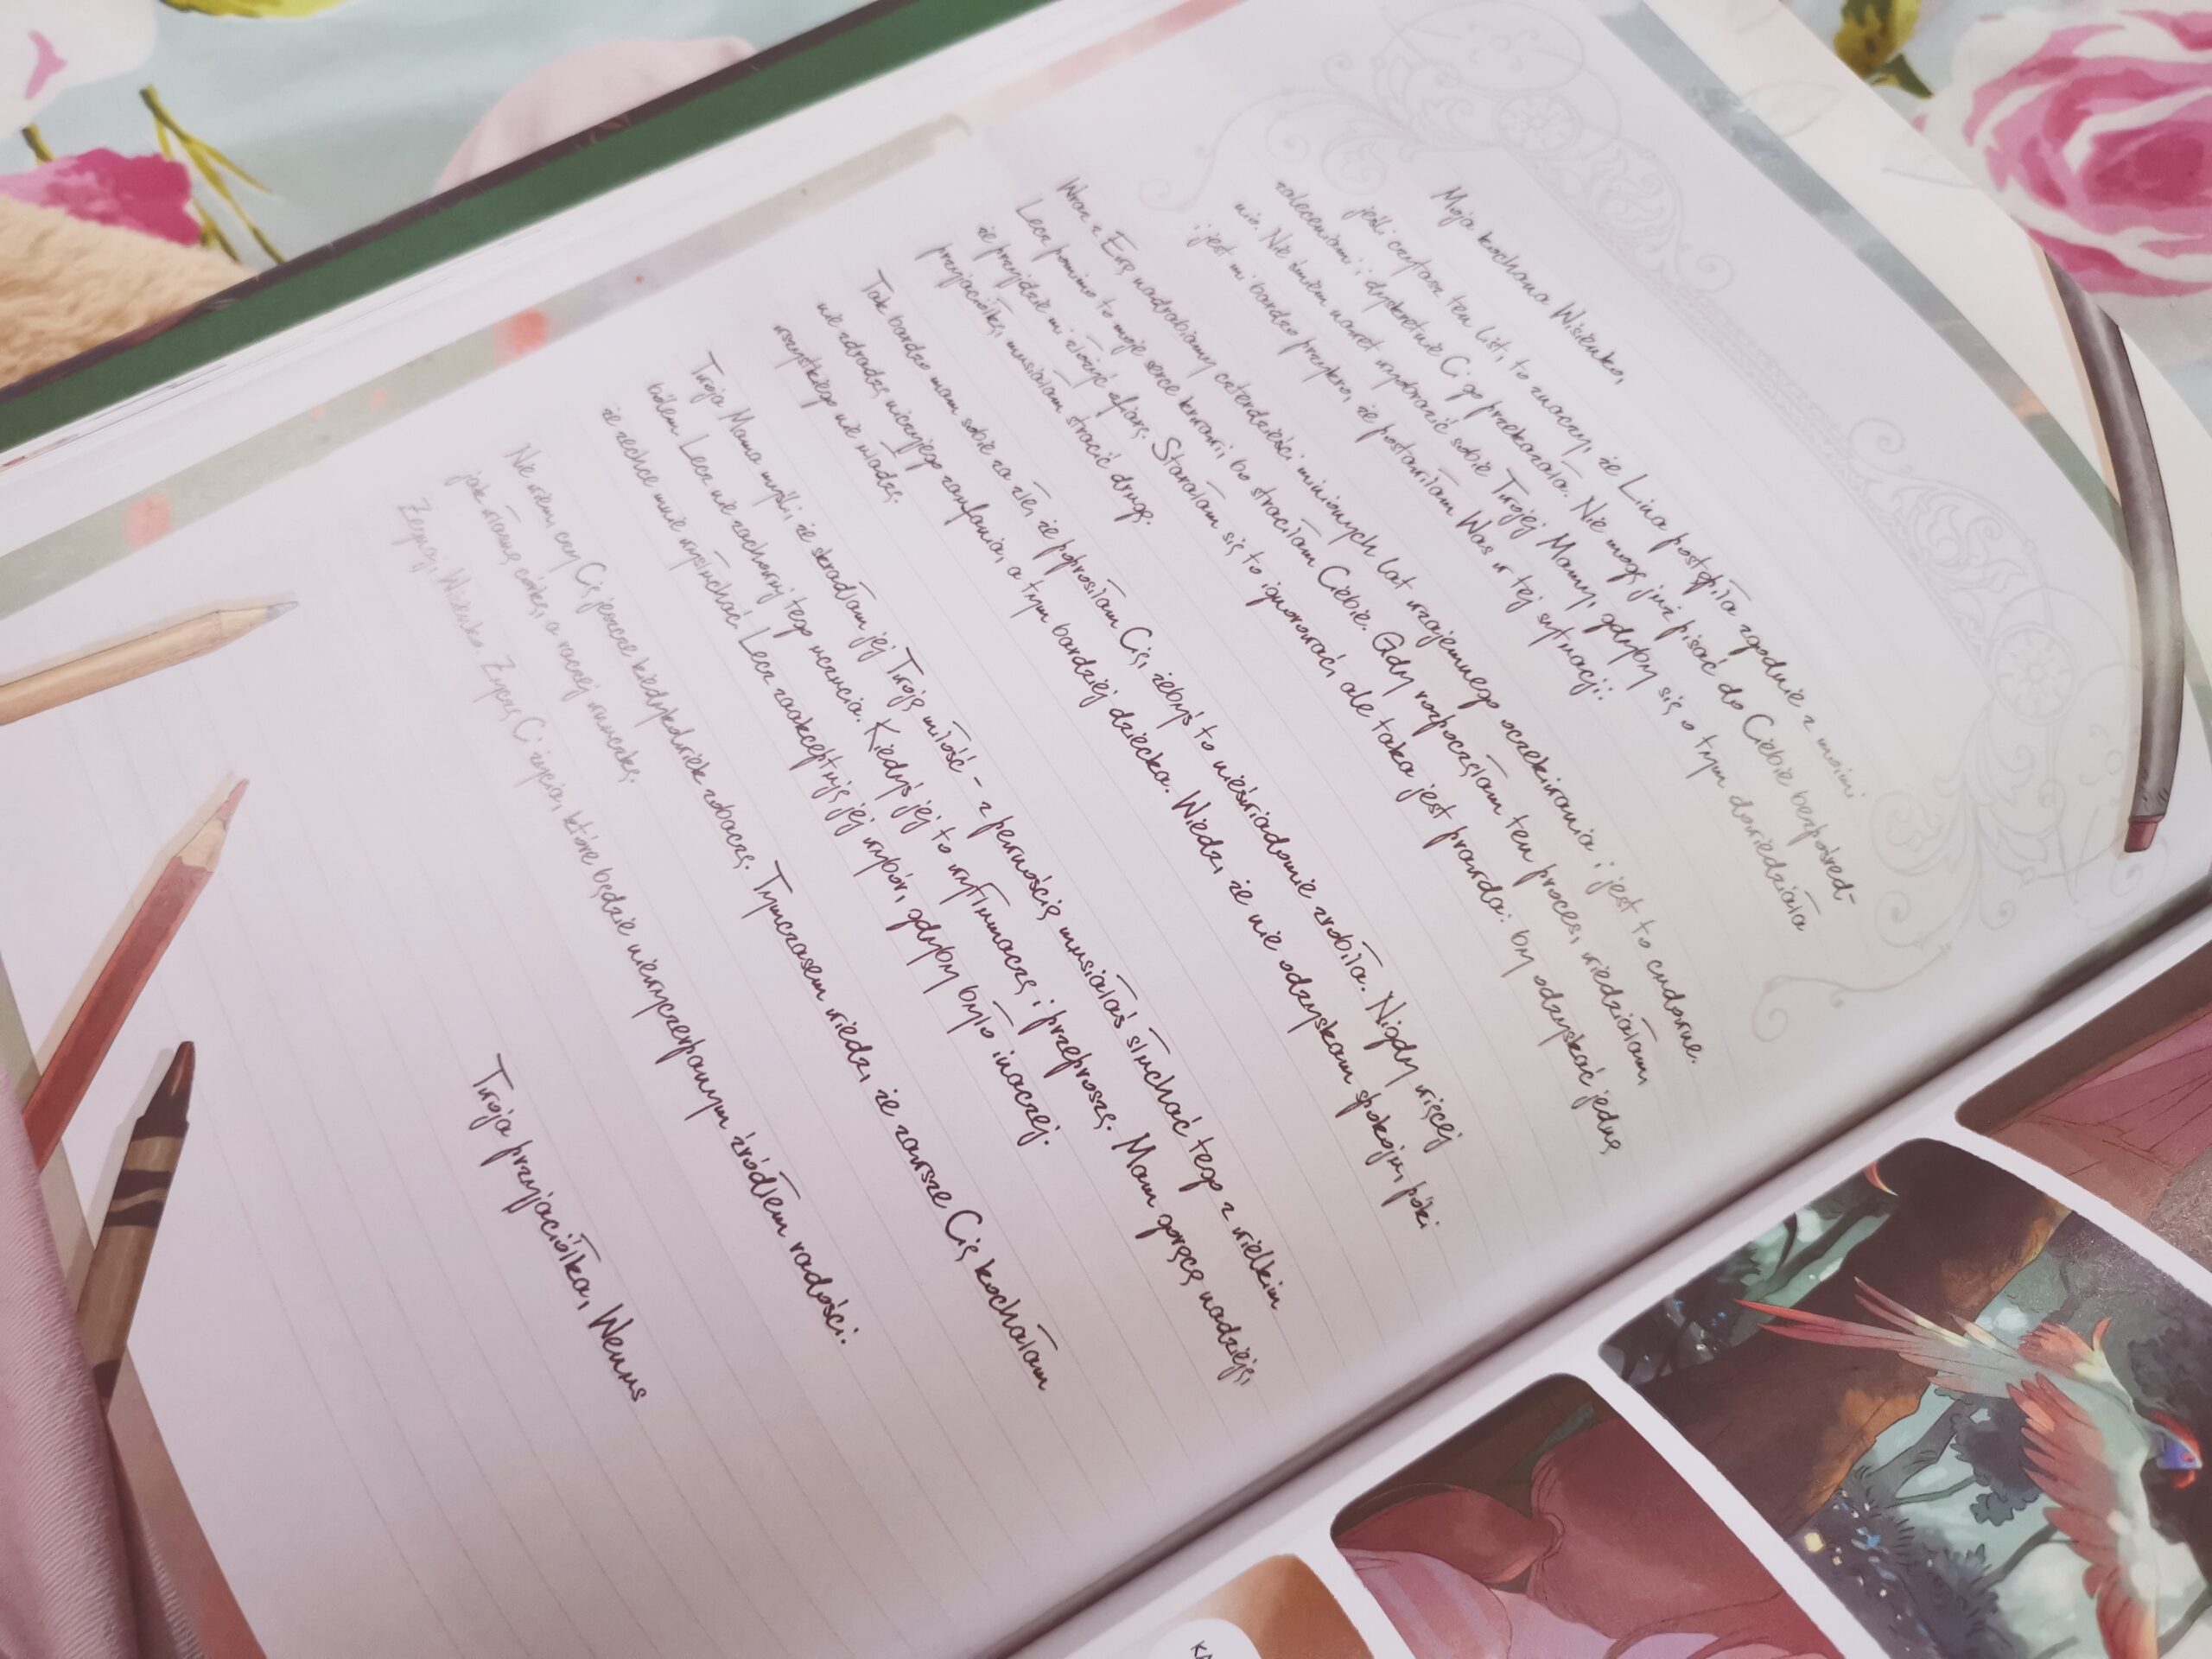 Moja kochana Wisienko,
jeśli czytasz ten list, to znaczy, że Lina postąpiła zgodnie z moimi
zaleceniami i dyskretnie Ci go przekazała. Nie mogę już pisać do Ciebie bezpośred-
nio. Nie śmiem nawet wyobrazić sobie Twojej Mamy, gdyby się o tym dowiedziała
i jest mi bardzo przykro, że postawiłam Was w tej sytuacji.
Wraz z Evą nadrobiamy czterdzieści minionych lat wzajemnego oczekiwania i jest to cudowne.
Lecz pomimo to moje serce krwawi, bo straciłam Ciebie. Gdy rozpoczęłam ten proces, wiedziałam,
że przyjdzie mi złożyć ofiarę. Starałam się to ignorować, ale taka jest prawda: by odzyskać jedną
przyjaciółkę, musiałam stracić drugą.
Tak bardzo mam sobie za złe, że poprosiłam Cię, żebyś to nieświadomie zrobiła. Nigdy więcej
nie zdradzę niczyjego zaufania, a tym bardziej dziecka. Wiedz, że nie odzyskam spokoju, póki
wszystkiego nie
Twoja Mama myśli, że skradłam jej Twoją miłość - z pewnością musiałaś słuchać tego z wielkim
bólem. Lecz nie zachowuj tego uczucia. Kiedyś jej to wytłumaczę i przeproszę. Mam gorącą nadzieję,
że zechce mnie wysłuchać. Lecz zaakceptuję jej wybór, gdyby było inaczej.
Nie wiem, czy Cię jeszcze kiedykolwiek zobaczę. Tymczasem wiedz, że zawsze Cię kochałam
jak własną córkę, a raczej wnuczkę.
Żegnaj, Wisienko. Życzę Ci życia, które będzie niewyczerpanym źródłem radości.
Twoja przyjaciółka, Wenus